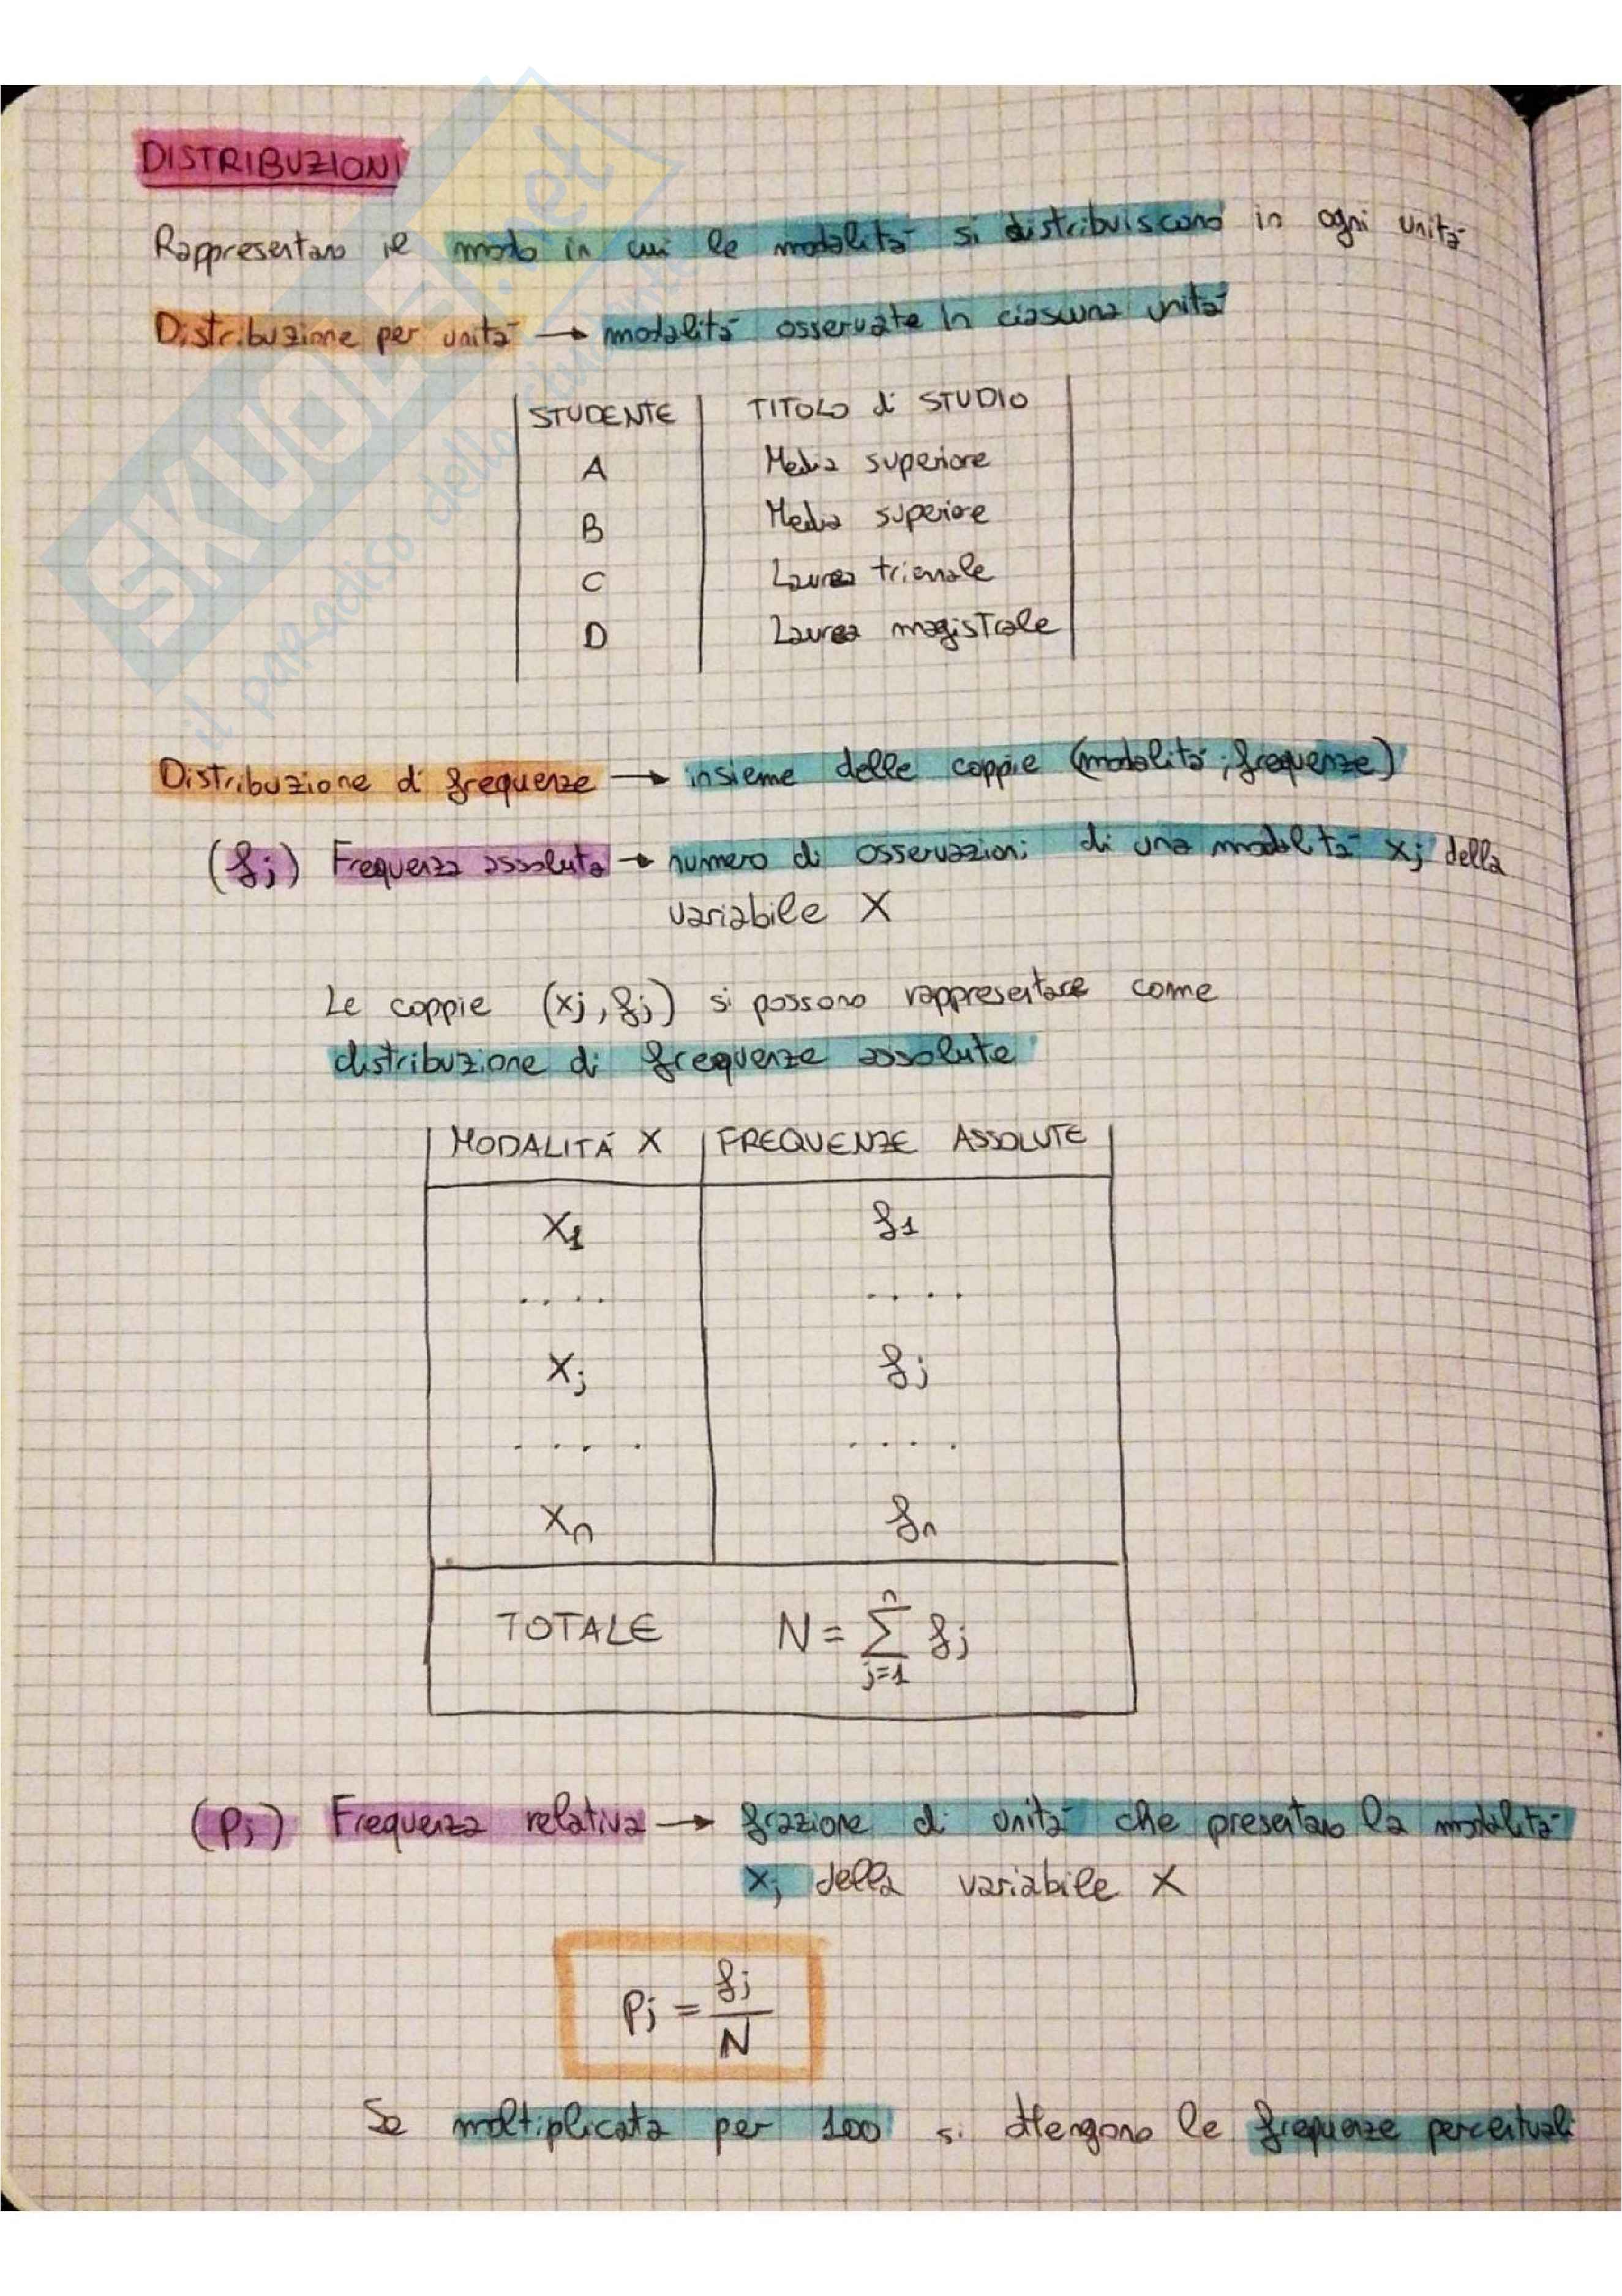 DISTRIBUZIONI
Rappresentano il modo in cui le modalità si distribuiscono in ogni unità
Distribuzione per unità → modalità osservate in ciascuna unità
STUDENTE TITOLO di STUDIO
A Media superiore
B Media superiore
C Laurea triennale
D Laurea magistrale
Distribuzione di frequenze → insieme delle coppie (modalità; frequenze)
(fj) Frequenza assoluta → numero di osservazioni di una modalità xj della
variabile X
Le coppie (xj, fj) si possono rappresentare come
distribuzione di frequenze assolute
MODALITÁ X FREQUENZE ASSOLUTE
X1 f1
.... ....
Xj fj
.... ....
Xn fn
TOTALE N = Σ fj
n
j=1
(Pj) Frequenza relativa → frazione di unità che presentano la modalità
xj della variabile X
Pj = fj / N
Se moltiplicata per 100 si ottengono le frequenze percentuali
SKUOLA.net
il paradiso dello studente